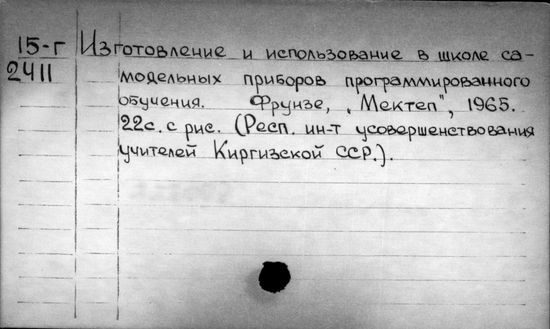 15-г Изготовление и использование в школе са-
2411 модельных приборов программированного
обучения. Фрунзе, „Мектеп", 1965.
22с. с рис. (Респ. ин-т усовершенствования
учителей Киргизской ССР.).